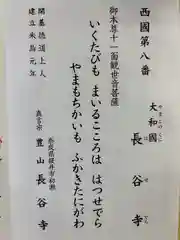 西國第八番
大和國
やまとのくに
長谷寺
はせでら
御本尊十一面観世音菩薩
いくたびも まいるこころは はつせでら
やまもちかいも ふかきたにがわ
奈良県桜井市初瀬
真言宗 豊山 長谷寺
開基 徳道上人
建立 朱鳥元年